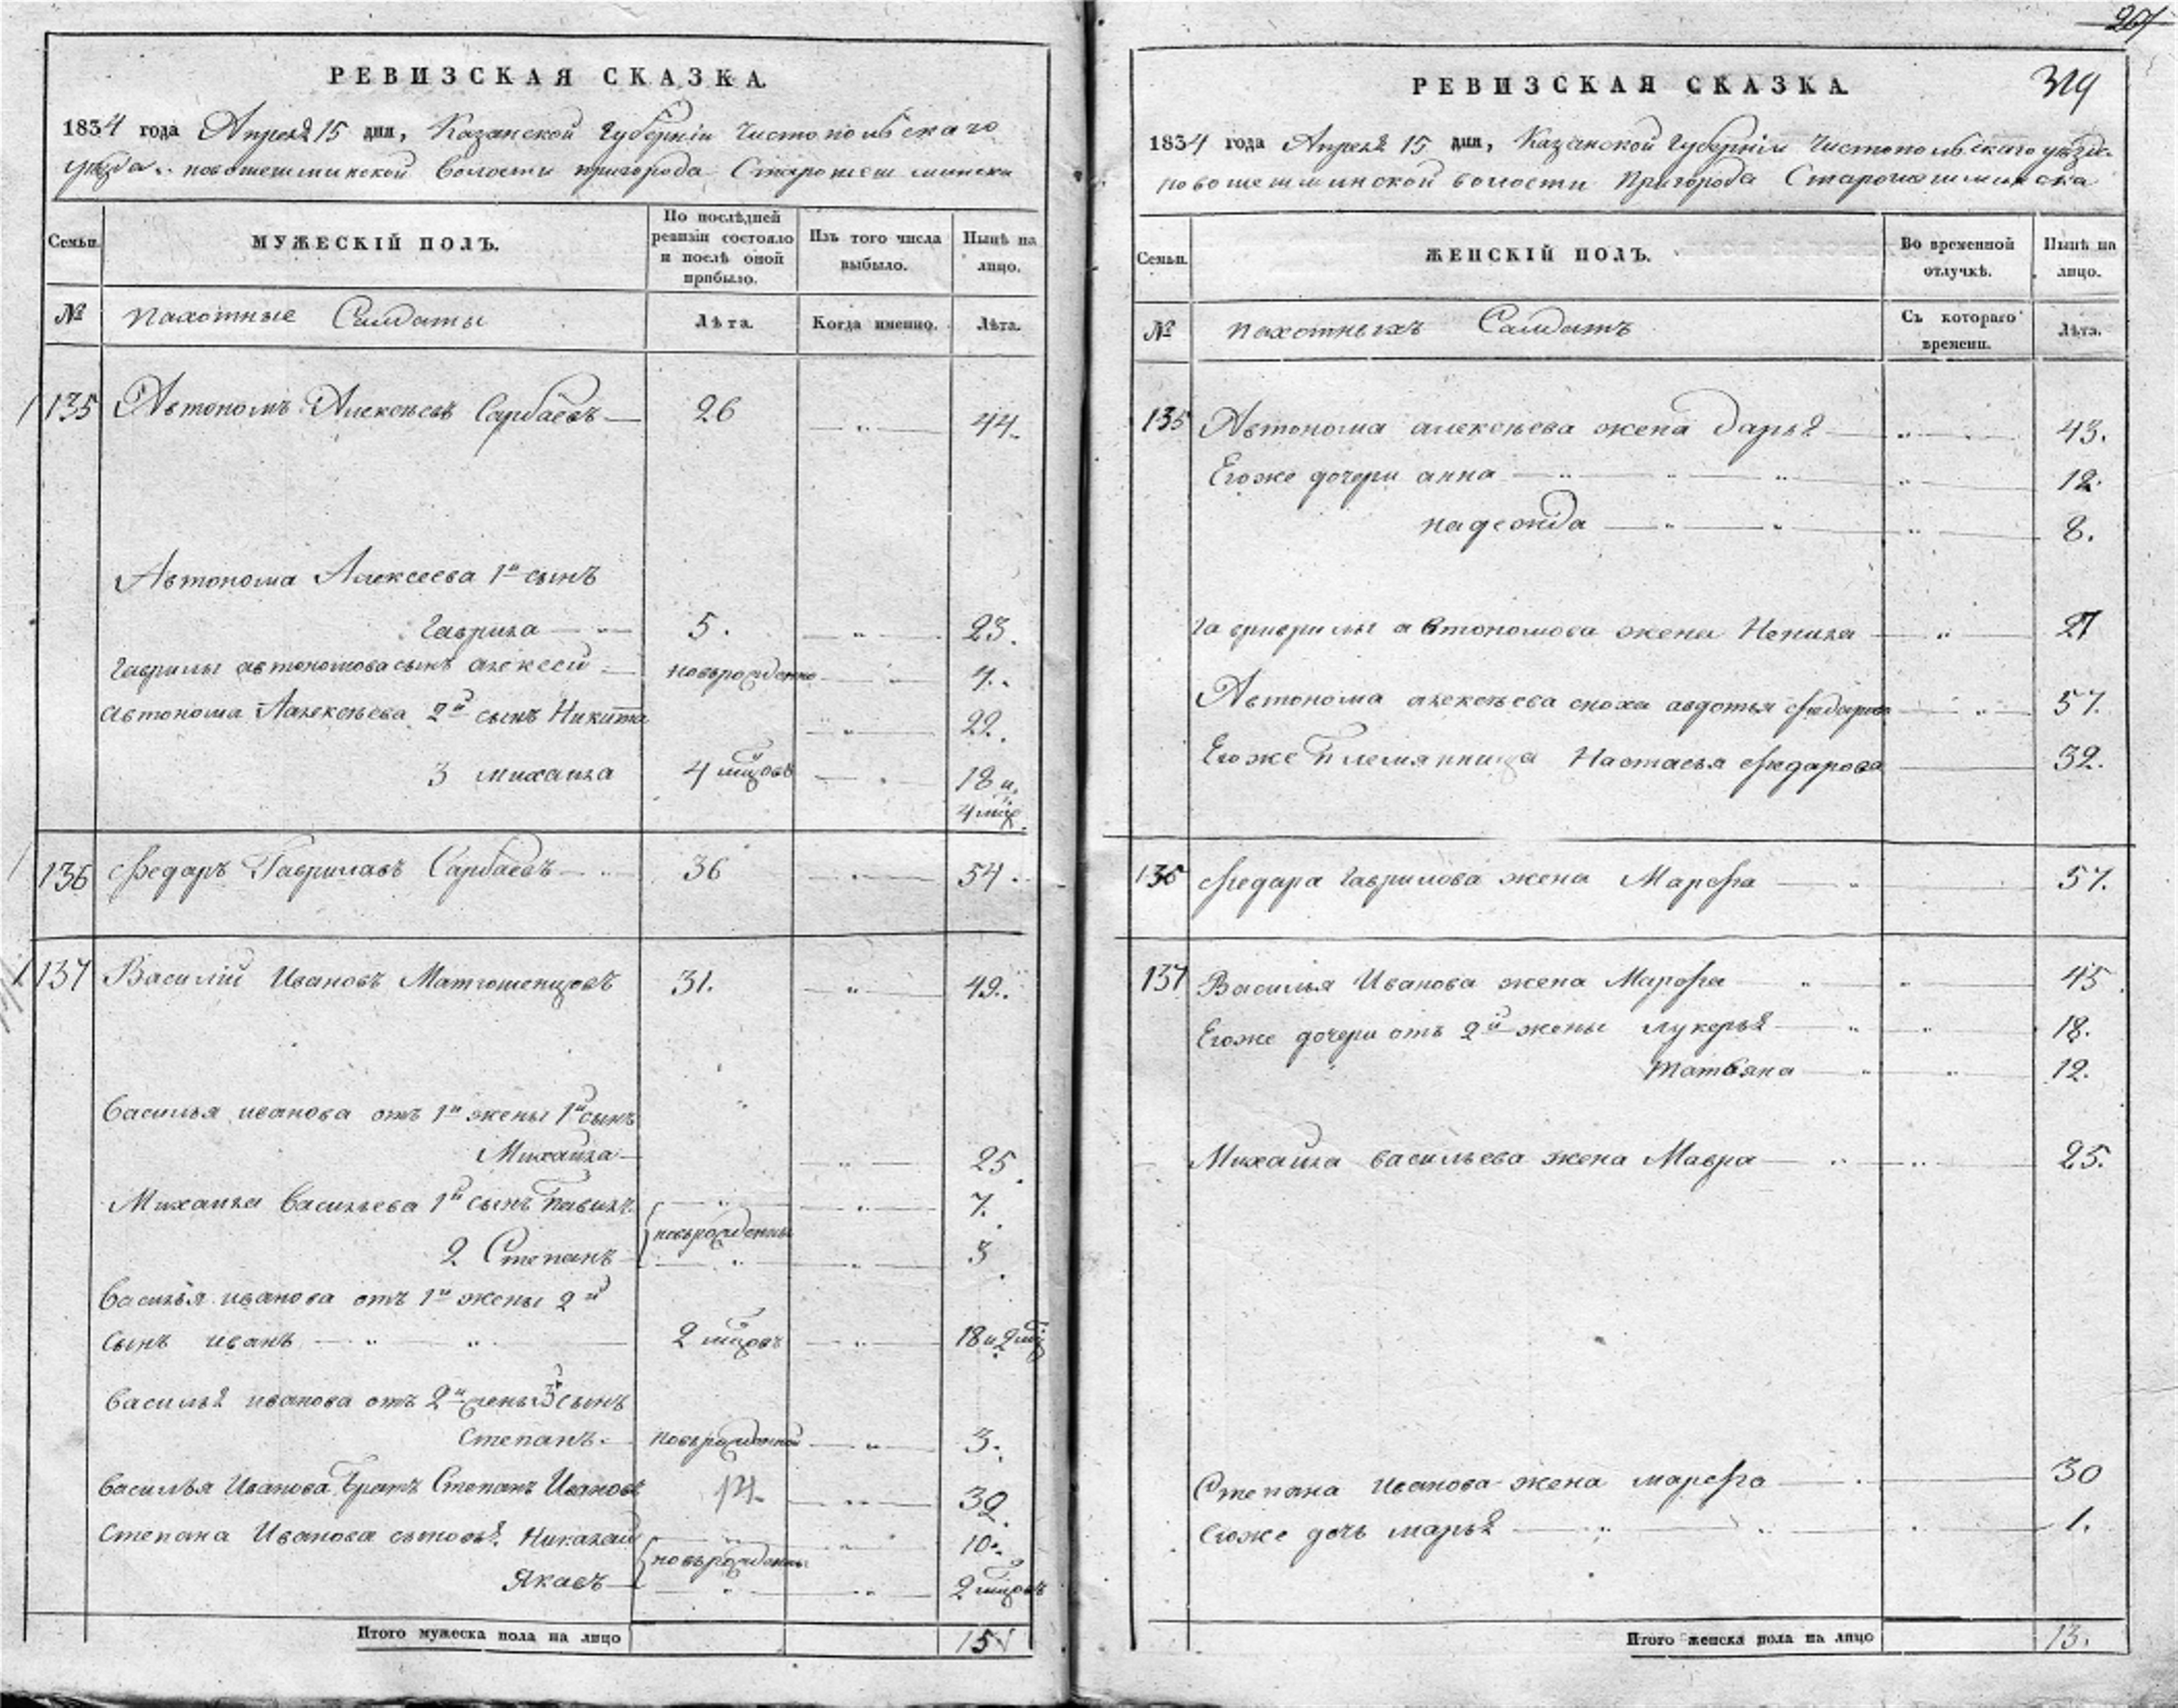 РЕВИЗСКАЯ СКАЗКА.
1834 года Апреля 15 дня, Казанской Губерніи Чистопольскаго
уѣзда новошешминской волости пригорода Старошешминска
Семьи. МУЖЕСКІЙ ПОЛЪ. По послѣдней ревизіи состояло и послѣ оной прибыло. Изъ того числа выбыло. Нынѣ на лицо.
№ пахотные Салдаты Лѣта. Когда именно. Лѣта.
135 Автономъ Алексѣевъ Сарбаевъ 26 44.
Автонома Алексеева 1й сынъ
Гаврила 5. 23.
Гаврилы автономова сынъ алексей новърожденно 7.
автонома Алексѣева 2й сынъ Никита 22.
3 михаила 4 мцовъ 18 и
4 мце
136 Ѳедаръ Гавриловъ Сарбаевъ 36 54.
137 Василій Ивановъ 31. 49.
Василья иванова отъ 1й жены 1й сынъ
Михайла 25
Михайлы Васильева 1й сынъ Павилъ 7.
новърожденны
2 Степанъ 3
Василья иванова отъ 1й жены 2й
сынъ иванъ 2 мцовъ 18 и 2 мц
Василья иванова отъ 2й жены 3 сынъ
Степанъ. новърожденной 3.
Василья Иванова братъ Степанъ Ивановъ 14. 32.
Степана Иванова сыновья Никалай 10.
новърожденны
Якавъ 2 мцовъ
Итого мужеска пола на лицо 15
267
319
РЕВИЗСКАЯ СКАЗКА.
1834 года Апреля 15 дня, Казанской Губерніи Чистопольскаго уѣзда
новошешминской волости Пригорода Старошешминска
Семьи. ЖЕНСКІЙ ПОЛЪ. Во временной отлучкѣ. Нынѣ на лицо.
№ пахотныхъ Салдатъ Съ котораго времени. Лѣта.
135 Автонома алексѣева жена Дарья 43.
Егоже дочери анна 12.
надежда 8.
автономова жена Ненила 27
Автонома алексѣева сноха авдотья Ѳедарова 57.
Егоже племянница Настасья Ѳедарова 32.
136 Ѳедара Гаврилова жена Марѳа 57.
137 Василья Иванова жена Марѳа 45
Егоже дочери отъ 2й жены лукерья 18.
татьяна 12.
Михайла васильева жена Мавра 25.
Степана Иванова жена марѳа 30
Егоже дочь марья 1.
Итого женска пола на лицо 13.